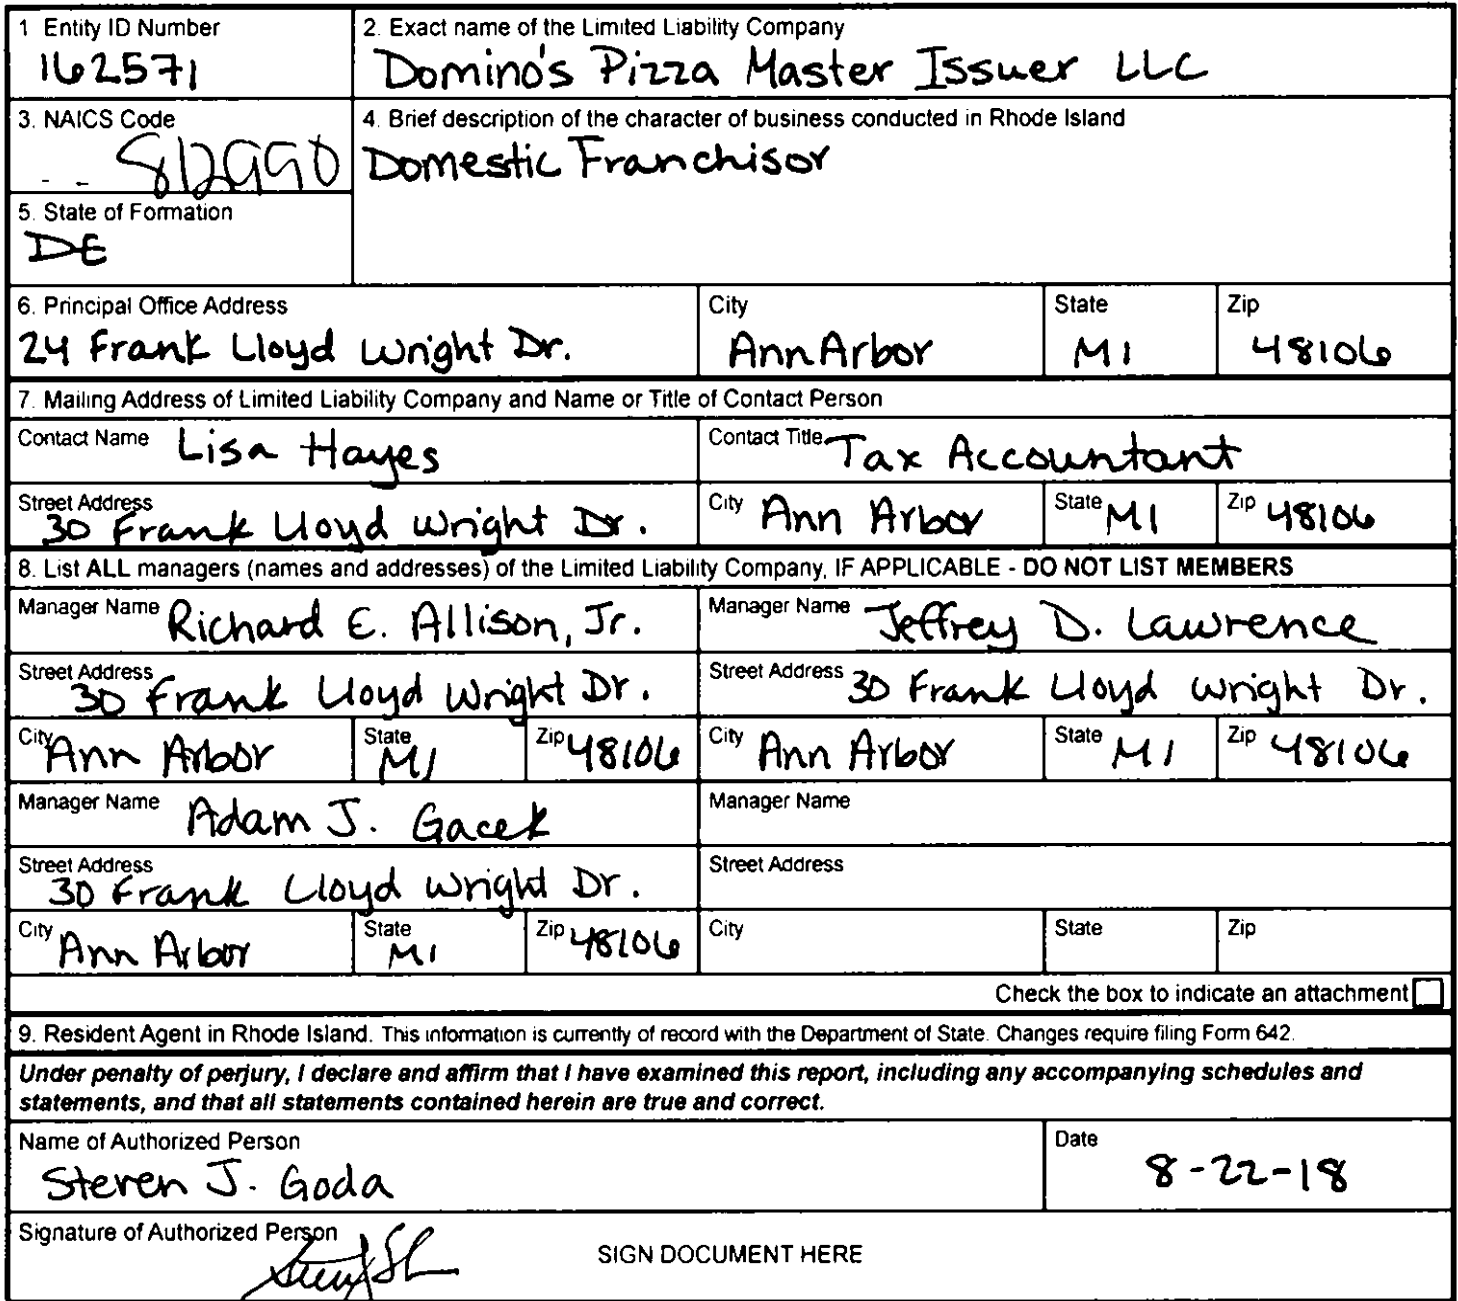 1 Entity ID Number
162571
2. Exact name of the Limited Liability Company
Domino's Pizza Master Issuer LLC
3. NAICS Code
812990
4. Brief description of the character of business conducted in Rhode Island
Domestic Franchisor
5. State of Formation
DE
6. Principal Office Address
24 Frank Lloyd Wright Dr.
City
Ann Arbor
State
MI
Zip
48106
7. Mailing Address of Limited Liability Company and Name or Title of Contact Person
Contact Name Lisa Hayes
Contact Title Tax Accountant
Street Address
30 Frank Lloyd Wright Dr.
City Ann Arbor
State MI
Zip 48106
8. List ALL managers (names and addresses) of the Limited Liability Company, IF APPLICABLE - DO NOT LIST MEMBERS
Manager Name Richard E. Allison, Jr.
Manager Name Jeffrey D. Lawrence
Street Address
30 Frank Lloyd Wright Dr.
Street Address 30 Frank Lloyd Wright Dr.
City Ann Arbor
State MI
Zip 48106
City Ann Arbor
State MI
Zip 48106
Manager Name Adam J. Gacek
Manager Name
Street Address
30 Frank Lloyd Wright Dr.
Street Address
City Ann Arbor
State MI
Zip 48106
City
State
Zip
Check the box to indicate an attachment
9. Resident Agent in Rhode Island. This information is currently of record with the Department of State. Changes require filing Form 642.
Under penalty of perjury, I declare and affirm that I have examined this report, including any accompanying schedules and
statements, and that all statements contained herein are true and correct.
Name of Authorized Person
Steven J. Goda
Date
8-22-18
Signature of Authorized Person
SIGN DOCUMENT HERE